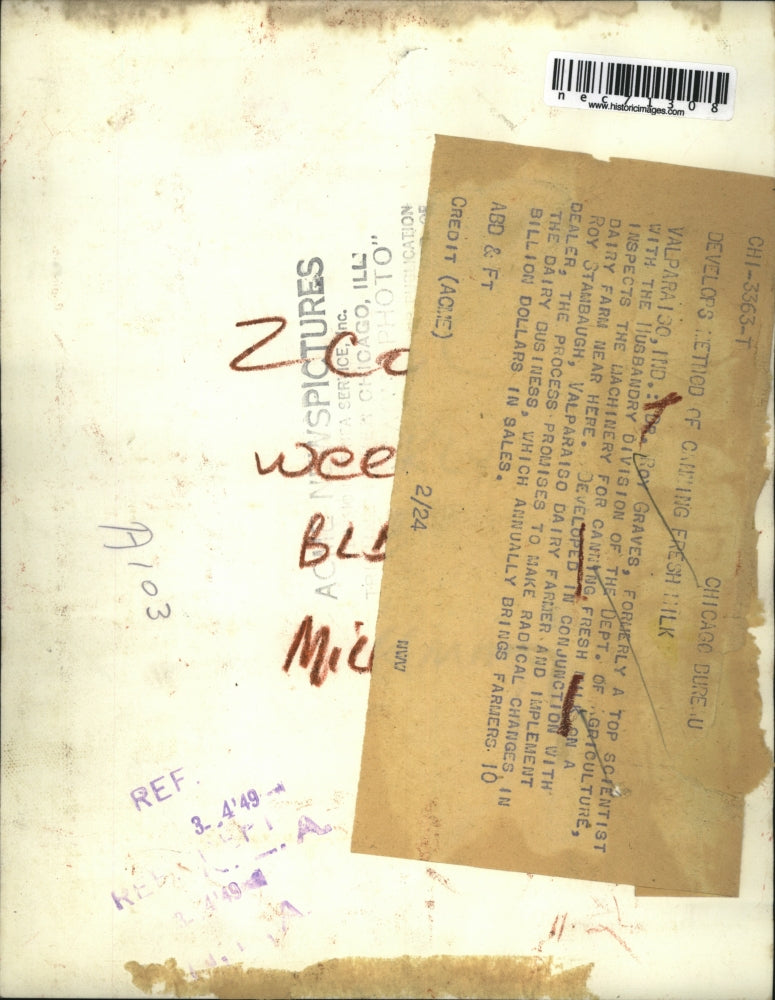 nec71308
www.historicimages.com
CHI-3363-T
CHICAGO BUREAU
DEVELOPS METHOD OF CANNING FRESH MILK
VALPARAISO, IND.: DR. ROY GRAVES, FORMERLY A TOP SCIENTIST
WITH THE HUSBANDRY DIVISION OF THE DEPT. OF AGRICULTURE,
INSPECTS THE MACHINERY FOR CANNING FRESH MILK ON A
DAIRY FARM NEAR HERE. DEVELOPED IN CONJUNCTION WITH
ROY STAMBAUGH, VALPARAISO DAIRY FARMER AND IMPLEMENT
DEALER, THE PROCESS PROMISES TO MAKE RADICAL CHANGES IN
THE DAIRY BUSINESS, WHICH ANNUALLY BRINGS FARMERS 10
BILLION DOLLARS IN SALES.
ABD & FT
CREDIT (ACME)
2/24
NVW
NEWSPICTURES
A SERVICE, Inc.
CHICAGO, ILL.
PHOTO"
2 Co
wee
BL
Mil
A103
REF.
3-4'49